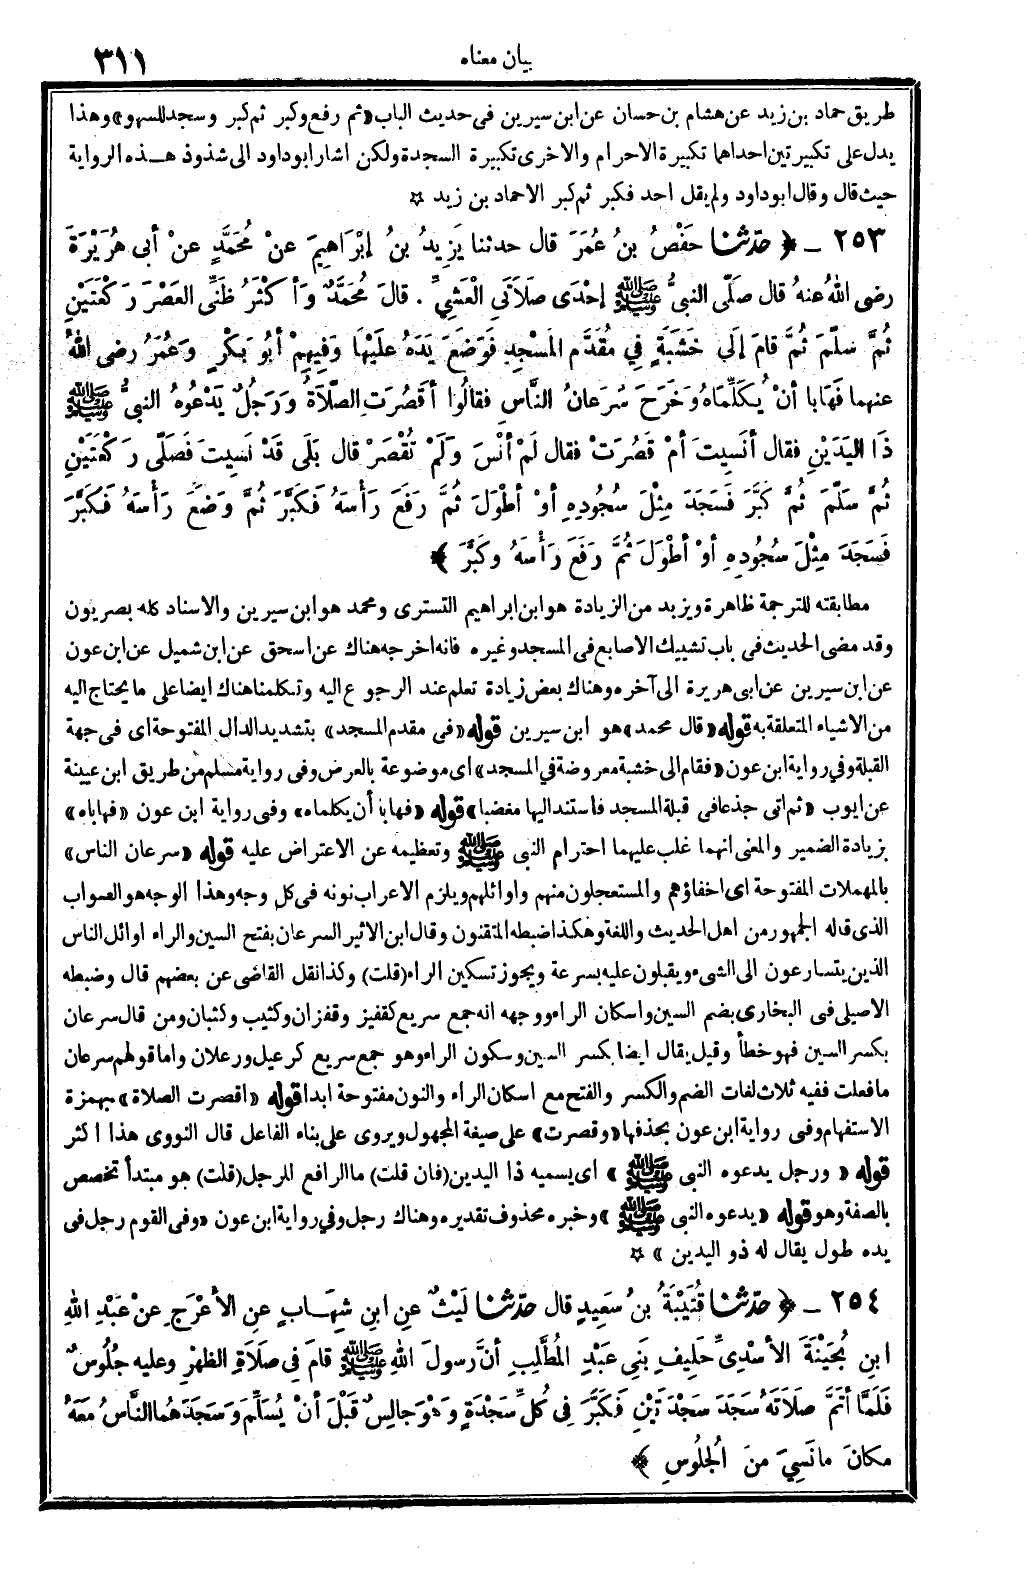 بيان معناه
٣١١
طريق حماد بن زيد عن هشام بن حسان عن ابن سيرين فى حديث الباب «ثم رفع وكبر ثم كبر وسجد للسهو» وهذا
يدل على تكبيرتين احداهما تكبيرة الاحرام والاخرى تكبيرة السجدة ولكن اشار ابو داود الى شذوذ هـذه الرواية
حيث قال وقال ابو داود ولم يقل احد فكبر ثم كبر الاحماد بن زيد ☆
٢٥٣ ـ ﴿ حَدَّثَنَا حَفْصُ بنُ عُمَرَ قال حدثنا يَزِيدُ بنُ إبْرَاهِيمَ عنْ مُحَمَّدٍ عنْ أبى هُرَيْرَةَ
رضى اللهُ عنهُ قال صَلَّى النبيُّ ﷺ إحْدَى صَلاَتَيِ الْعَشِيِّ . قالَ مُحَمَّدٌ وَأكْثَرُ ظَنِّى العَصْرَ رَكْعَتَيْنِ
ثُمَّ سَلَّمَ ثُمَّ قامَ إلَى خَشَبَةٍ فِي مُقَدَّمِ المَسْجِدِ فَوَضَعَ يَدَهُ علَيْهَا وَفِيهِمْ أبُو بَكْرٍ وَعُمَرُ رضى اللهُ
عنهما فَهَابا أنْ يُكَلِّمَاهُ وَخَرَجَ سَرَعانُ النَّاسِ فقالُوا أقَصُرَتِ الصَّلاَةُ وَرَجُلٌ يَدْعُوهُ النبيُّ ﷺ
ذَا اليَدَيْنِ فقال أنَسِيتَ أمْ قَصُرَتْ فقال لَمْ أنْسَ وَلَمْ تُقْصَرْ قال بَلَى قَدْ نَسِيتَ فَصَلَّى رَكْعَتَيْنِ
ثُمَّ سَلَّمَ ثُمَّ كَبَّرَ فَسَجَدَ مِثْلَ سُجُودِهِ أوْ أطْوَلَ ثُمَّ رَفَعَ رَأسَهُ فَكَبَّرَ ثُمَّ وَضَعَ رَأسَهُ فَكَبَّرَ
فَسَجَدَ مِثْلَ سُجُودِهِ أوْ أطْوَلَ ثُمَّ رَفَعَ رَأسَهُ وكَبَّرَ ﴾
مطابقته للترجمة ظاهرة ويزيد من الزيادة هو ابن ابراهيم التسترى ومحمد هو ابن سيرين والاسناد كله بصريون
وقد مضى الحديث فى باب تشبيك الاصابع فى المسجد وغيره فانه اخرجه هناك عن اسحق عن ابن شميل عن ابن عون
عن ابن سيرين عن ابى هريرة الى آخره وهناك بعض زيادة تعلم عند الرجوع اليه وتكلمنا هناك ايضا على ما يحتاج اليه
من الاشياء المتعلقة به قوله «قال محمد» هو ابن سيرين قوله «فى مقدم المسجد» بتشديد الدال المفتوحة اى فى جهة
القبلة وفي رواية ابن عون «فقام الى خشبة معروضة في المسجد» اى موضوعة بالعرض وفى رواية مسلم من طريق ابن عيينة
عن ايوب «ثم اتى جذعا فى قبلة المسجد فاستند اليها مغضبا» قوله «فهابا أن يكلماه» وفى رواية ابن عون «فهاباه»
بزيادة الضمير والمعنى انهما غلب عليهما احترام النبى ﷺ وتعظيمه عن الاعتراض عليه قوله «سرعان الناس»
بالمهملات المفتوحة اى اخفاؤهم والمستعجلون منهم واوائلهم ويلزم الاعراب نونه فى كل وجه وهذا الوجه هو الصواب
الذى قاله الجمهور من اهل الحديث واللغة وهكذا ضبطه المتقنون وقال ابن الاثير السرعان بفتح السين والراء اوائل الناس
الذين يتسارعون الى الشىء ويقبلون عليه بسرعة ويجوز تسكين الراء (قلت) وكذا نقل القاضى عن بعضهم قال وضبطه
الاصيلى فى البخارى بضم السين واسكان الراء ووجهه انه جمع سريع كقفيز وقفزان وكثيب وكثبان ومن قال سرعان
بكسر السين فهو خطأ وقيل يقال ايضا بكسر السين وسكون الراء وهو جمع سريع كرعيل ورعلان واما قولهم سرعان
ما فعلت ففيه ثلاث لغات الضم والكسر والفتح مع اسكان الراء والنون مفتوحة ابدا قوله «اقصرت الصلاة» بهمزة
الاستفهام وفى رواية ابن عون بحذفها «وقصرت» على صيغة المجهول ويروى على بناء الفاعل قال النووى هذا اكثر
قوله « ورجل يدعوه النبى ﷺ » اى يسميه ذا اليدين (فان قلت) ما الرافع للرجل (قلت) هو مبتدأ تخصص
بالصفة وهو قوله «يدعوه النبى ﷺ» وخبره محذوف تقديره وهناك رجل وفي رواية ابن عون «وفى القوم رجل فى
يده طول يقال له ذو اليدين » ☆
٢٥٤ ـ ﴿ حَدَّثَنَا قُتَيْبَةُ بنُ سَعِيدٍ قال حَدَّثَنَا لَيْثٌ عنِ ابنِ شِهَابٍ عنِ الأعْرَجِ عنْ عَبْدِ اللهِ
ابنِ بُحَيْنَةَ الأسْدِىِّ حَلِيفِ بَنِى عَبْدِ المُطَّلِبِ أنَّ رسولَ اللهِ ﷺ قامَ فِى صَلاَةِ الظهْرِ وعليه جُلُوسٌ
فَلَمَّا أتَمَّ صَلاَتَهُ سَجَدَ سَجْدَتَيْنِ فَكَبَّرَ فِى كُلِّ سَجْدَةٍ وَهْوَ جالِسٌ قَبْلَ أنْ يُسَلِّمَ وَسَجَدَهُما النَّاسُ مَعَهُ
مكانَ ما نَسِيَ مِنَ الْجُلُوسِ ﴾